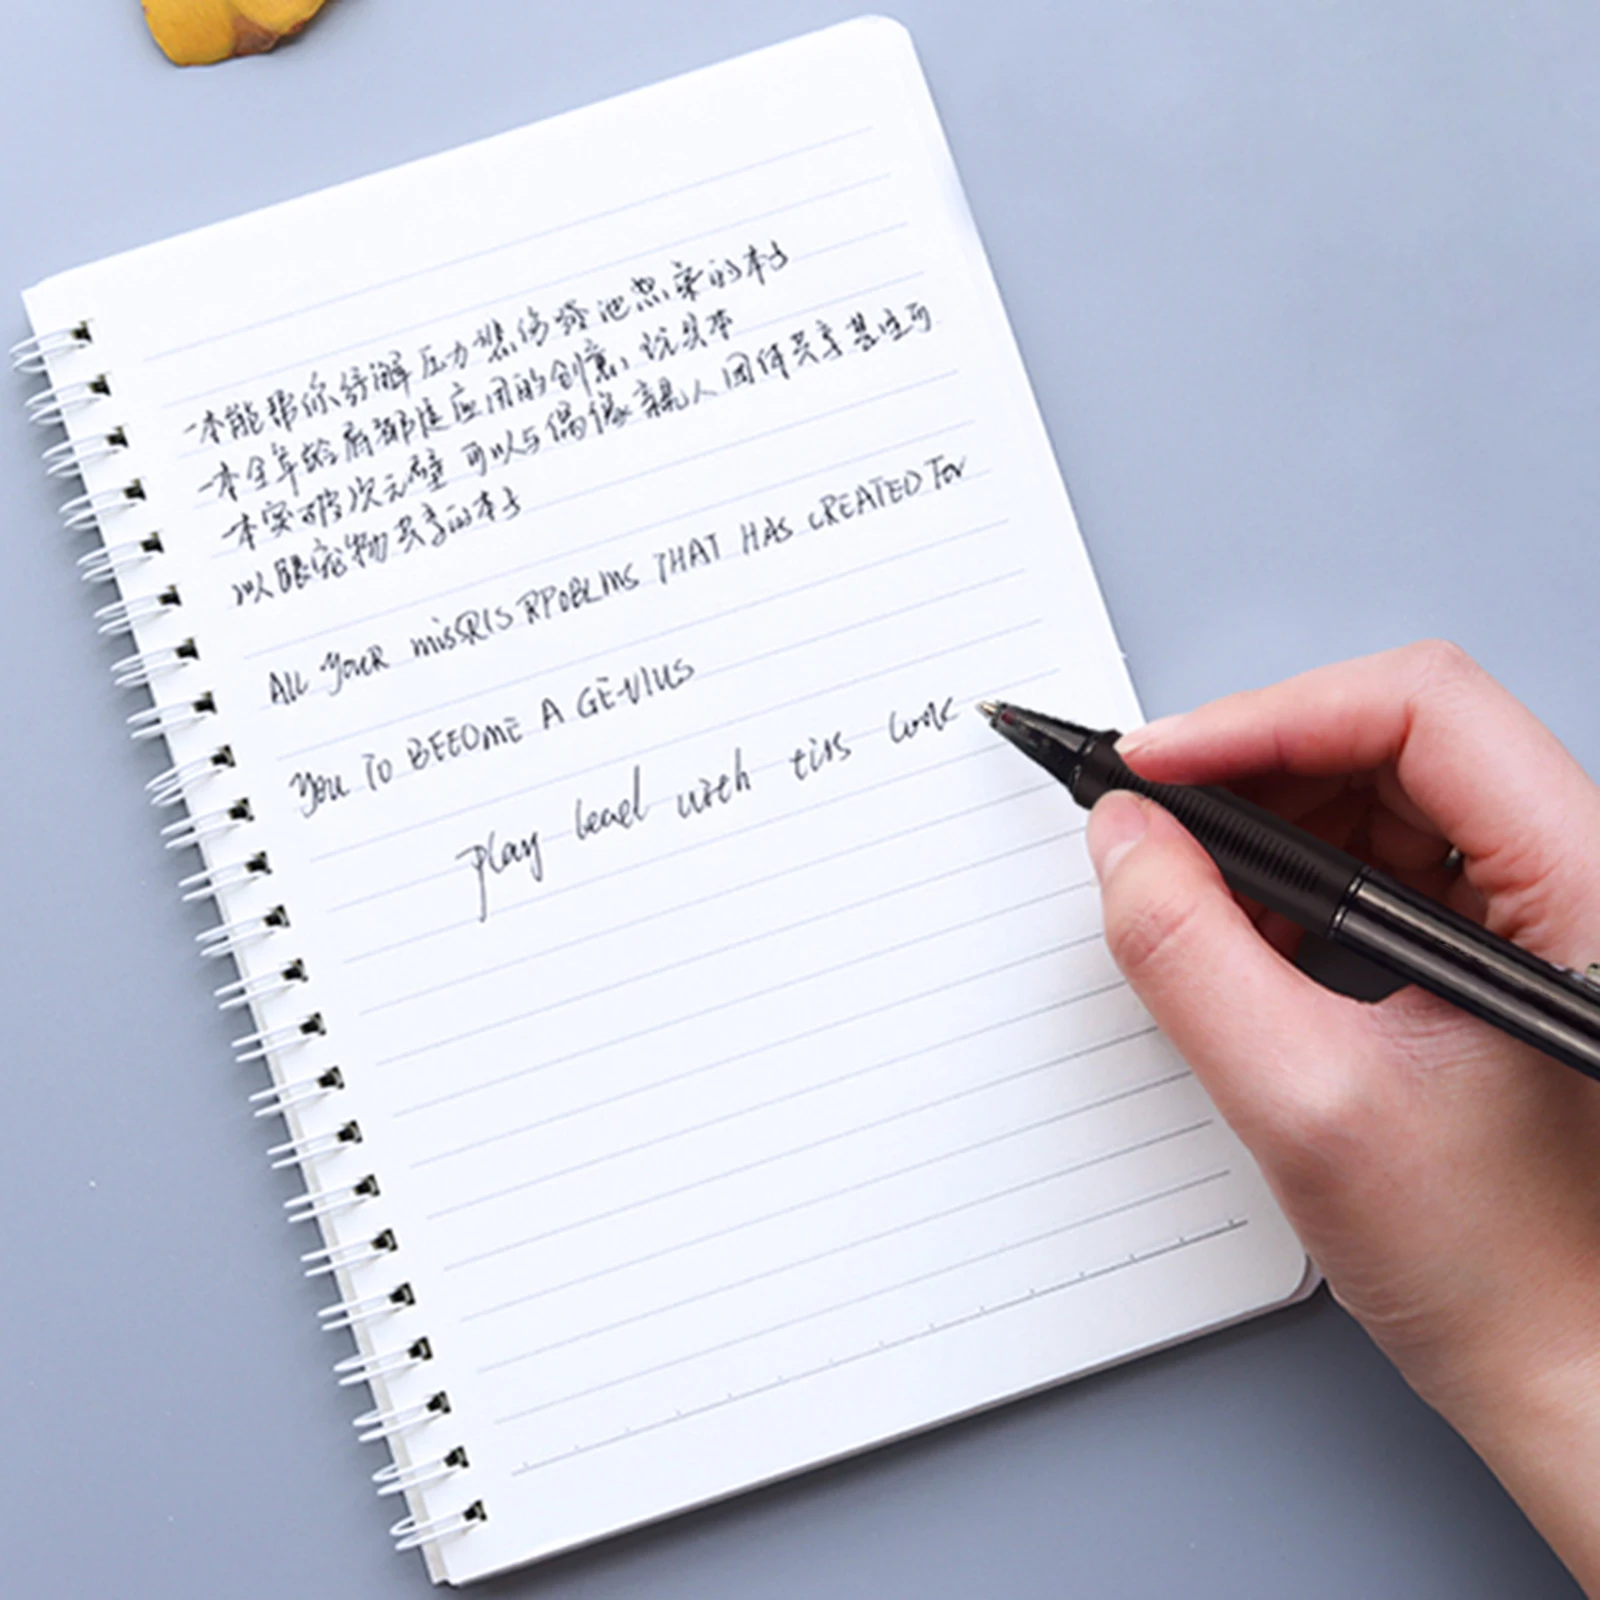 一本能帮你缓解压力悲伤 的本子
一本全年龄 都 应用的创意 本
一本突破次元壁 可以与偶像亲人 共享甚至可
以跟宠物共享的本子
All YouR missRIS RPoBLms THAT HAS CREATED For
You To BEEOME A GENIUS
Play lead with tirs look